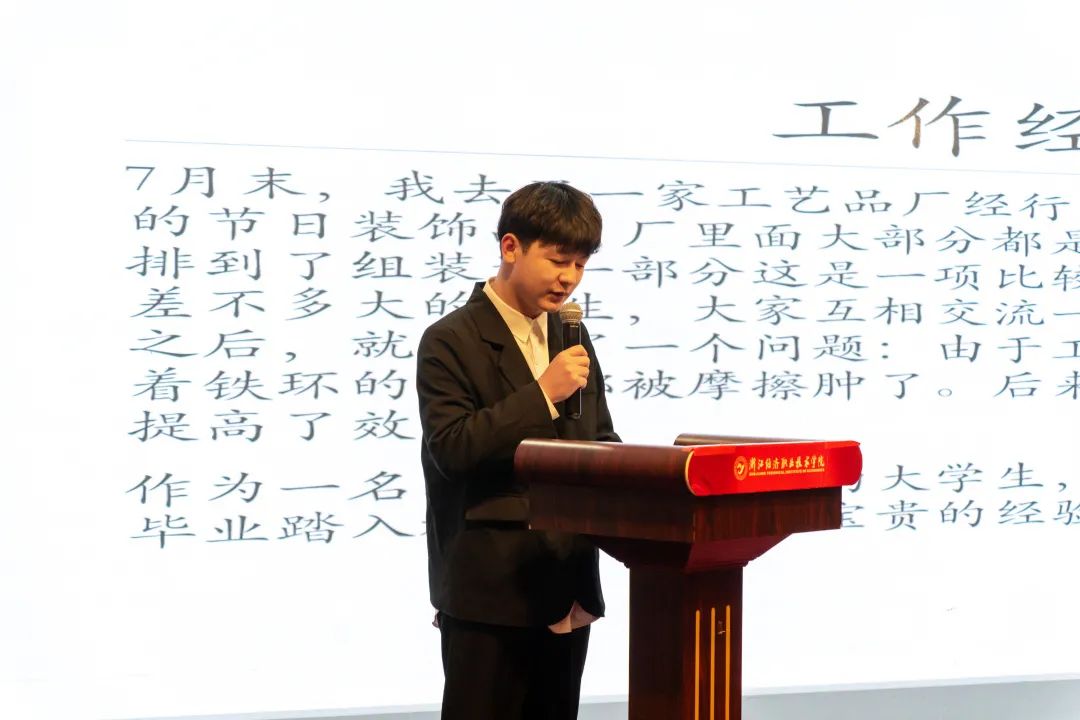 工作经
7月末，我去 一家工艺品厂经行
的节日装饰 厂里面大部分都是
排到了组装 一部分这是一项比较
差不多大的 生，大家互相交流一
之后，就 了一个问题：由于工
着铁环的 都被摩擦肿了。后来
提高了效
作为一名 大学生，
毕业踏入 宝贵的经验
浙江经济职业技术学院